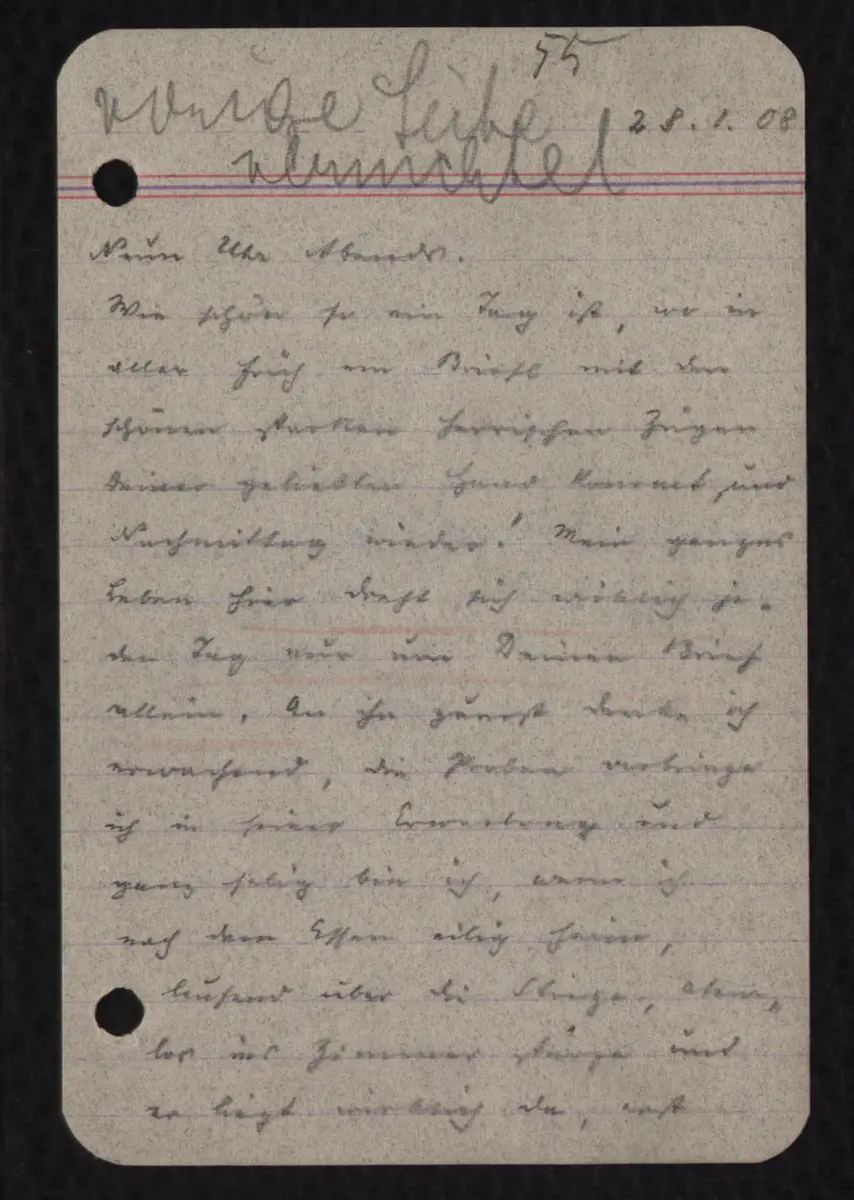 55
vorige Seite
vernichtet
28.1.08
Neun Uhr Abends.
Wie schön so ein Tag ist, wo in
aller Früh ein Briefl mit den
schönen starken herrischen Zügen
Deiner geliebten Hand kommt, und
Nachmittag wieder! Mein ganzes
Leben hier dreht sich wirklich je-
den Tag nur um Deinen Brief
allein. An ihn zuerst denke ich
erwachend, die Proben verbringe
ich in seiner Erwartung und
ganz selig bin ich, wenn ich
nach dem Essen eilig heim,
laufend über die Stiege, atem-
los ins Zimmer stürze und
er liegt wirklich da, erst